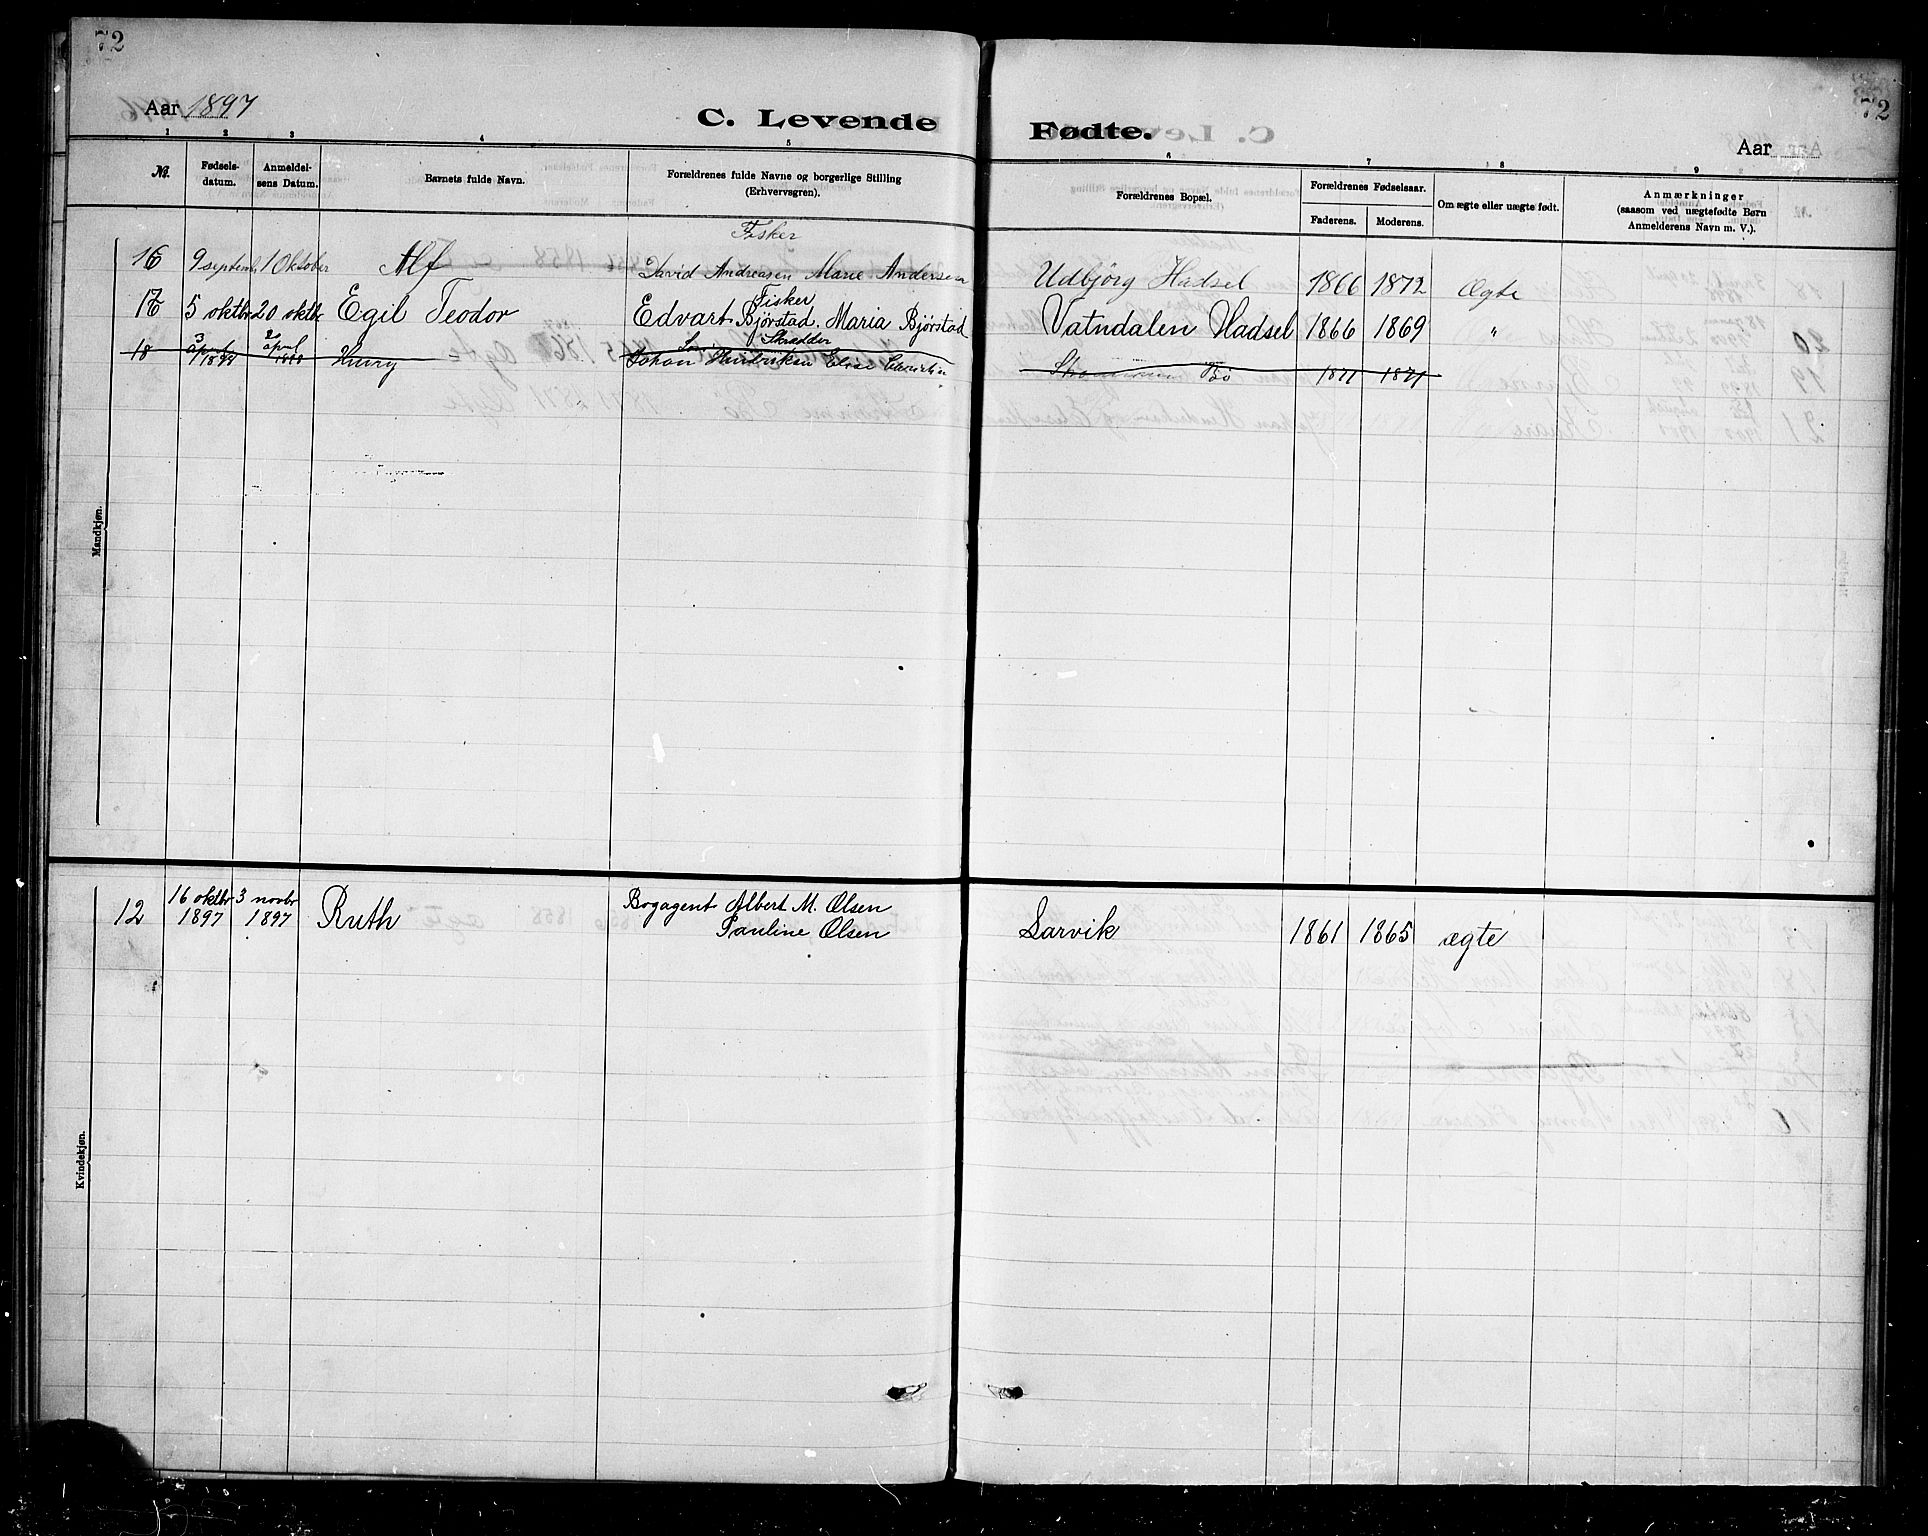 72
72
Aar 1897
C. Levende Fødte.
Aar
1 2 3 4 5 6 7 8 9
№
Fødsels-datum.
Anmeldel-sens Datum.
Barnets fulde Navn.
Forældrenes fulde Navne og borgerlige Stilling (Erhvervsgren).
Forældrenes Bopæl.
Forældrenes Fødselsaar.
Faderens.
Moderens.
Om ægte eller uægte født.
Anmærkninger
(saasom ved uægtefødte Børn
Anmelderens Navn m. V.).
Mandkjøn.
Fisker
16 9 septemb. 10 Oktober Alf David Andreasen Marie Andersen Udbjörg Hadsel 1866 1872 Ægte
Fisker
17 5 oktbr 20 oktbr Egil Teodor Edvart Bjørstad. Maria Bjørstad Vatndalen Hadsel 1866 1869 "
Skrædder
18 3 april 2 april Henry Johan Hendriksen Elise Bö 1871 1871
Kvindekjøn.
12 16 oktbr 1897 3 novbr 1897 Ruth Bogagent Albert M. Olsen
Pauline Olsen Larvik 1861 1865 ægte